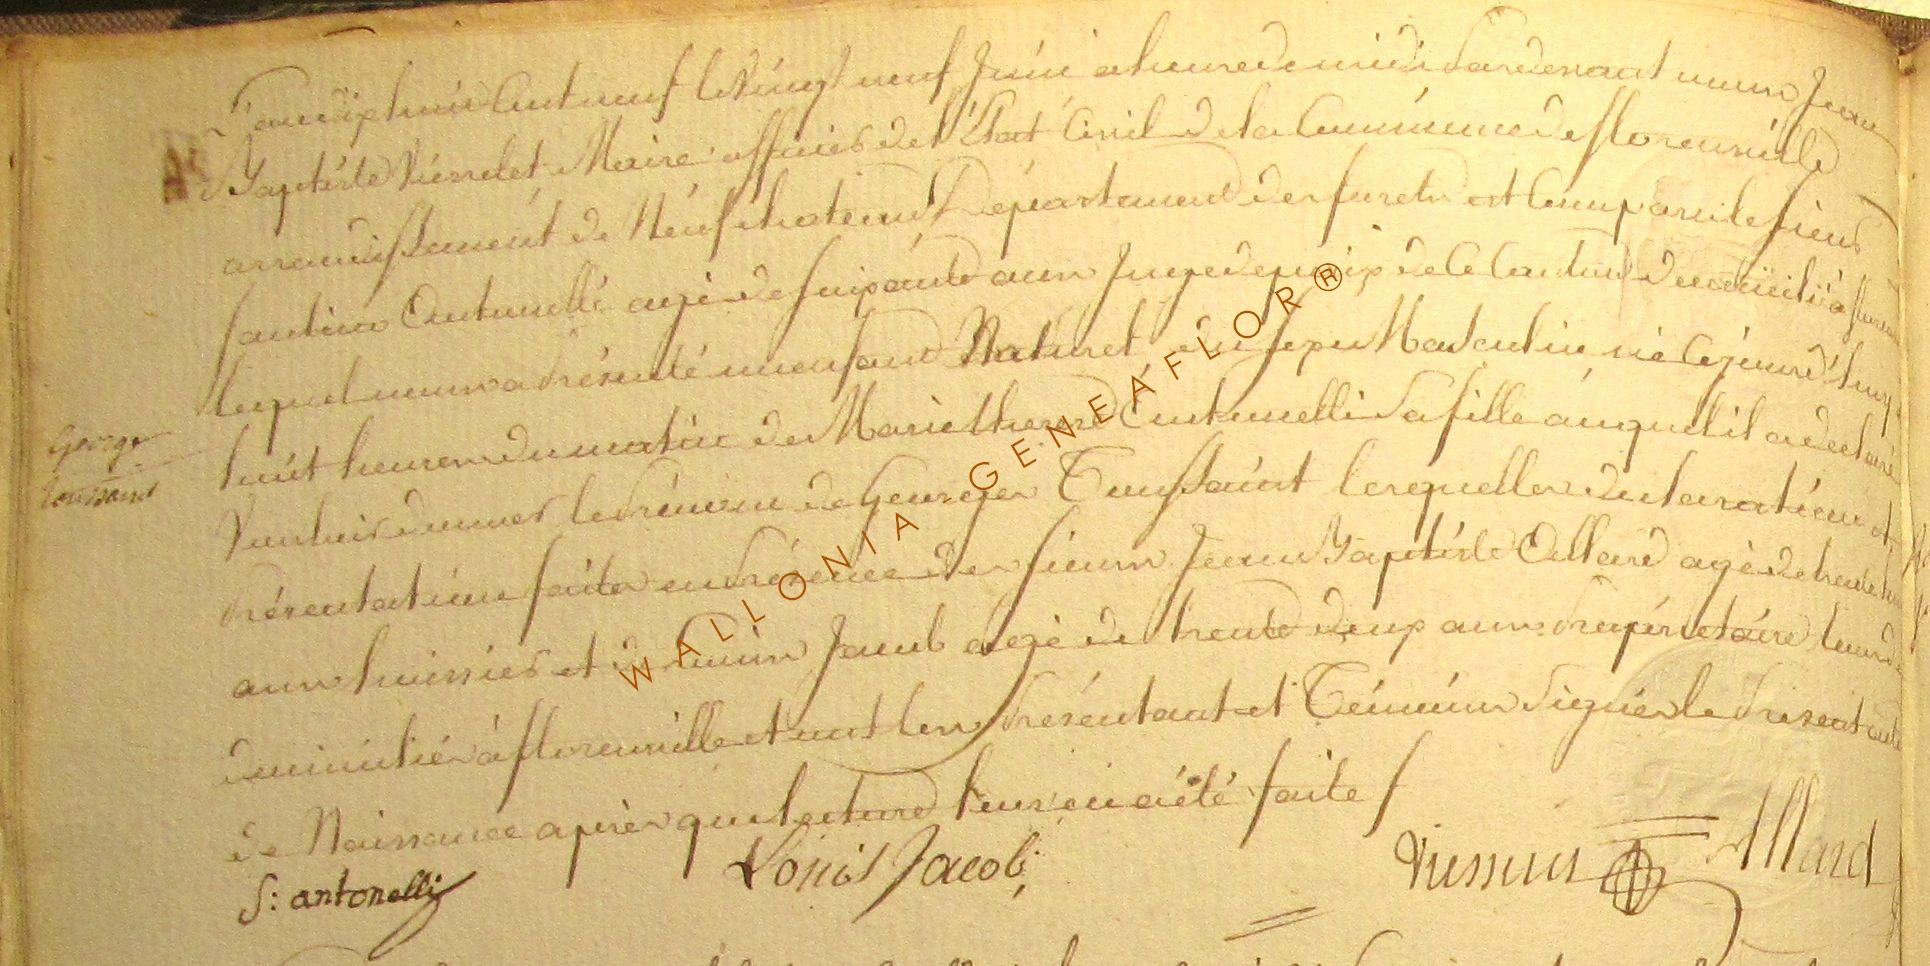 L'an dix huit Cent neuf le vingt neuf Juin a heure de midi Pardevant nous Jean
Baptiste Maire officier de l'État Civil de la Commune de florenville
arrondissement de Néufchateau Département des forets est Comparu le sieur
santin Antonelli agé de soixante ans Juge de paix de Ce Canton domicilié à
lequel nous a présenté un enfant Naturel du sexe Masculin né Cejourd'huy
huit heures du matin de Marie therese Antonelli sa fille auquel il a declaré
Vouloir donner le Prénom de Georges Toussaint lesquelles declaration et
Présentation faites en Présence des sieurs Jean Baptiste Allard agé de trente
ans huissier et Jacob agé de trente deux ans Propriétaire tous deux
domiciliés à florenville et ont les Présentant et Témoins Signé le Présent acte
de Naissance après que lecture leur en a été faite /
George
toussaint
S: antonelli
Louis Jacob
Allard
WALLONIA GENEAFLOR®